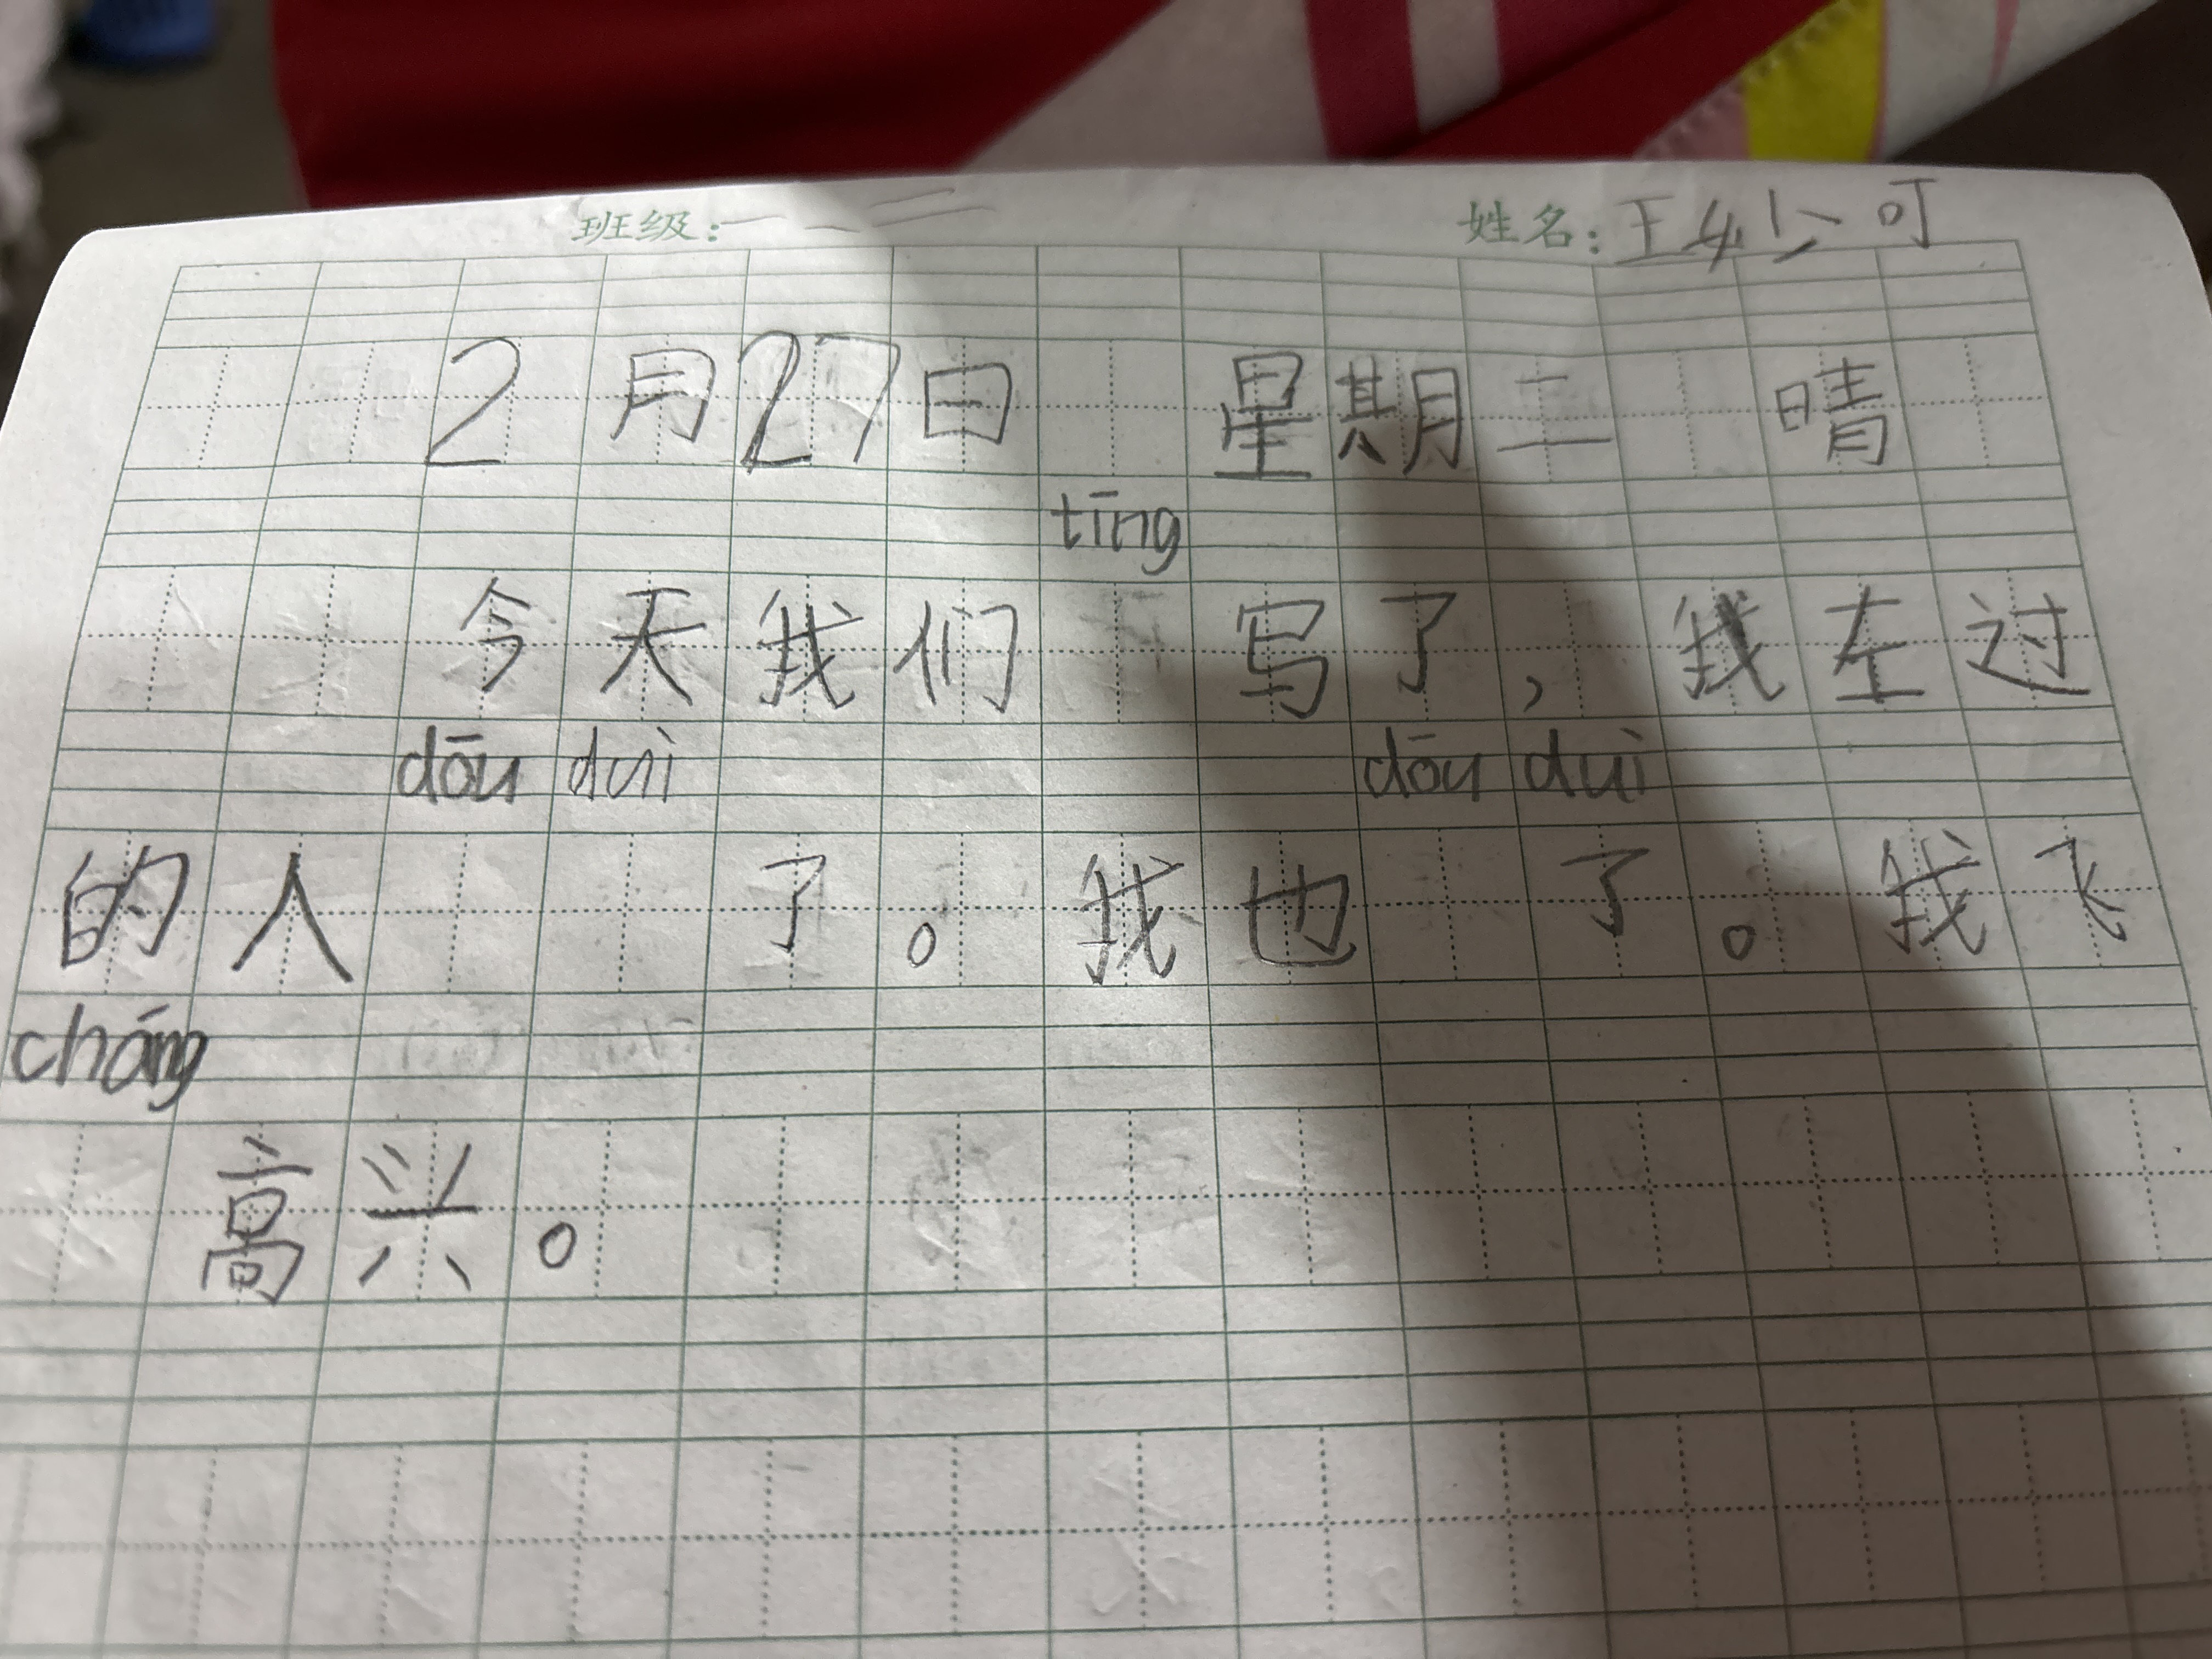 班级：一.二 姓名：王妙可
2月27日 星期二 晴
tīng
今天我们 写了，我左过
dōu duì dōu duì
的人 了。我也 了。我飞
cháng
高兴。